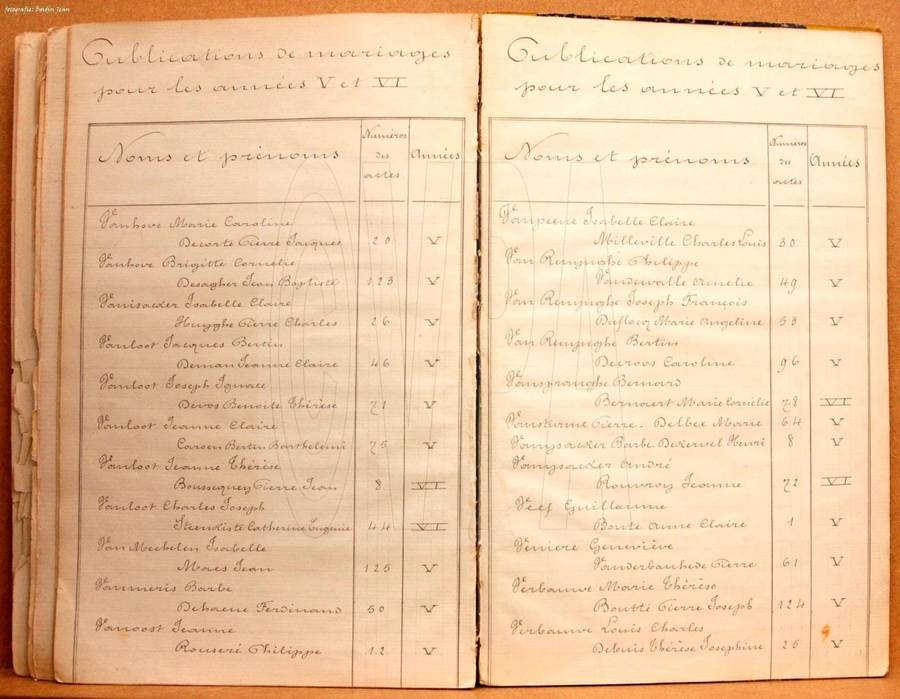 fotografie: Bertin Jean
Publications de mariages
pour les années V et VI
Noms et prénoms
Numéros des actes
Années
Vanhove Marie Caroline
Decorte Pierre Jacques 20 V
Vanhove Brigitte Cornélie
Desagher Jean Baptiste 123 V
Vanisacker Isabelle Claire
Huyghe Pierre Charles 26 V
Vanloot Jacques Bertin
Deman Jeanne Claire 46 V
Vanloot Joseph Ignace
Devos Benoite Thérèse 71 V
Vanloot Jeanne Claire
Caroen Bertin Barthelemi 75 V
Vanloot Jeanne Thérèse
Boussequey Pierre Jean 8 VI
Vanloot Charles Joseph
Steenkiste Catherine Eugenie 44 VI
Van Mechelen Isabelle
Maes Jean 125 V
Vanmeris Barbe
Dehaene Ferdinand 50 V
Vanoost Jeanne
Rouseré Philippe 12 V
Publications de mariages
pour les années V et VI
Noms et prénoms
Numéros des actes
Années
Vanpeene Isabelle Claire
Milleville Charles Louis 30 V
Van Remynghe Philippe
Vandewalle Amelie 49 V
Van Remynghe Joseph François
Duflouz Marie Angeline 53 V
Van Remynghe Bertin
Decroos Caroline 96 V
Vanspranghe Bernard
Bernaert Marie Cornélie 78 VI
Pierre - Delbee Marie 64 V
Vanysacker Barbe Dekervel Henri 8 V
Vanysacker André
Rouvroy Jeanne 72 VI
Veef Guillaume
Bonte Anne Claire 1 V
Veniere Geneviève
Vanderbauhede Pierre 61 V
Verbauwe Marie Thérèse
Boutté Pierre Joseph 124 V
Verbauwe Louis Charles
Debuis Thérèse Josephine 25 V